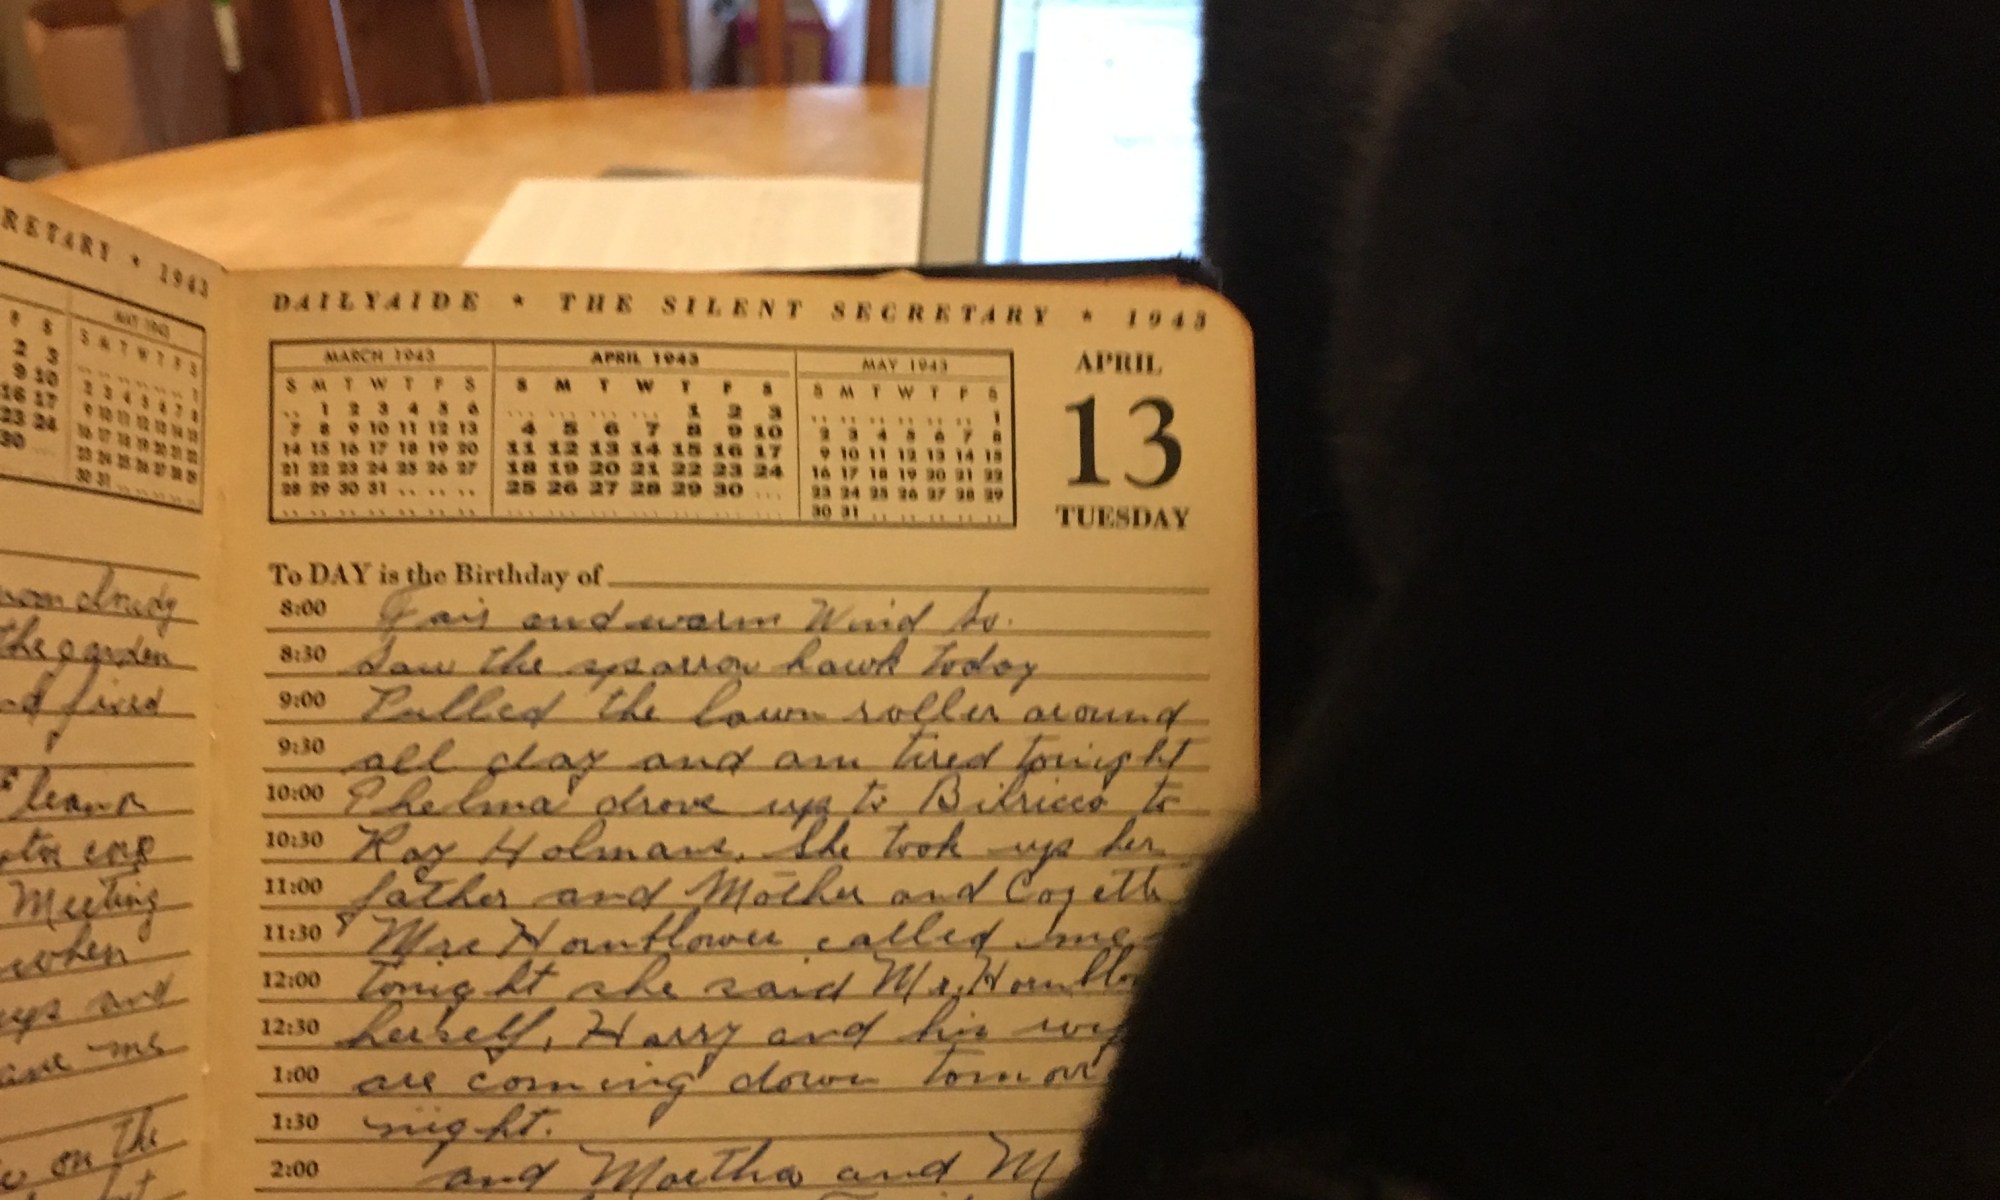 RETARY * 1943
F S
2 3
9 10
16 17
23 24
30
MAY 1943
S M T W T F S
1
2 3 4 5 6 7 8
9 10 11 12 13 14 15
16 17 18 19 20 21 22
23 24 25 26 27 28 29
30 31
cloudy
the garden
fixed
Meeting
when
and
me
on the
DAILYAIDE * THE SILENT SECRETARY * 1943
MARCH 1943
S M T W T F S
1 2 3 4 5 6
7 8 9 10 11 12 13
14 15 16 17 18 19 20
21 22 23 24 25 26 27
28 29 30 31
APRIL 1943
S M T W T F S
1 2 3
4 5 6 7 8 9 10
11 12 13 14 15 16 17
18 19 20 21 22 23 24
25 26 27 28 29 30
MAY 1943
S M T W T F S
1
2 3 4 5 6 7 8
9 10 11 12 13 14 15
16 17 18 19 20 21 22
23 24 25 26 27 28 29
30 31
APRIL
13
TUESDAY
To DAY is the Birthday of
8:00 Fair and warm Wind So.
8:30 Saw the sparrow hawk today
9:00 Pulled the lawn roller around
9:30 all day and am tired tonight
10:00 Thelma drove up to Bilricca to
10:30 Ray Holmans. She took up her
11:00 father and Mother and Cozette
11:30 Mrs Hornblower called me
12:00 tonight she said Mr. Hornblo
12:30 herself, Harry and his
1:00 are coming down tomor
1:30 night.
2:00 and Martha and M